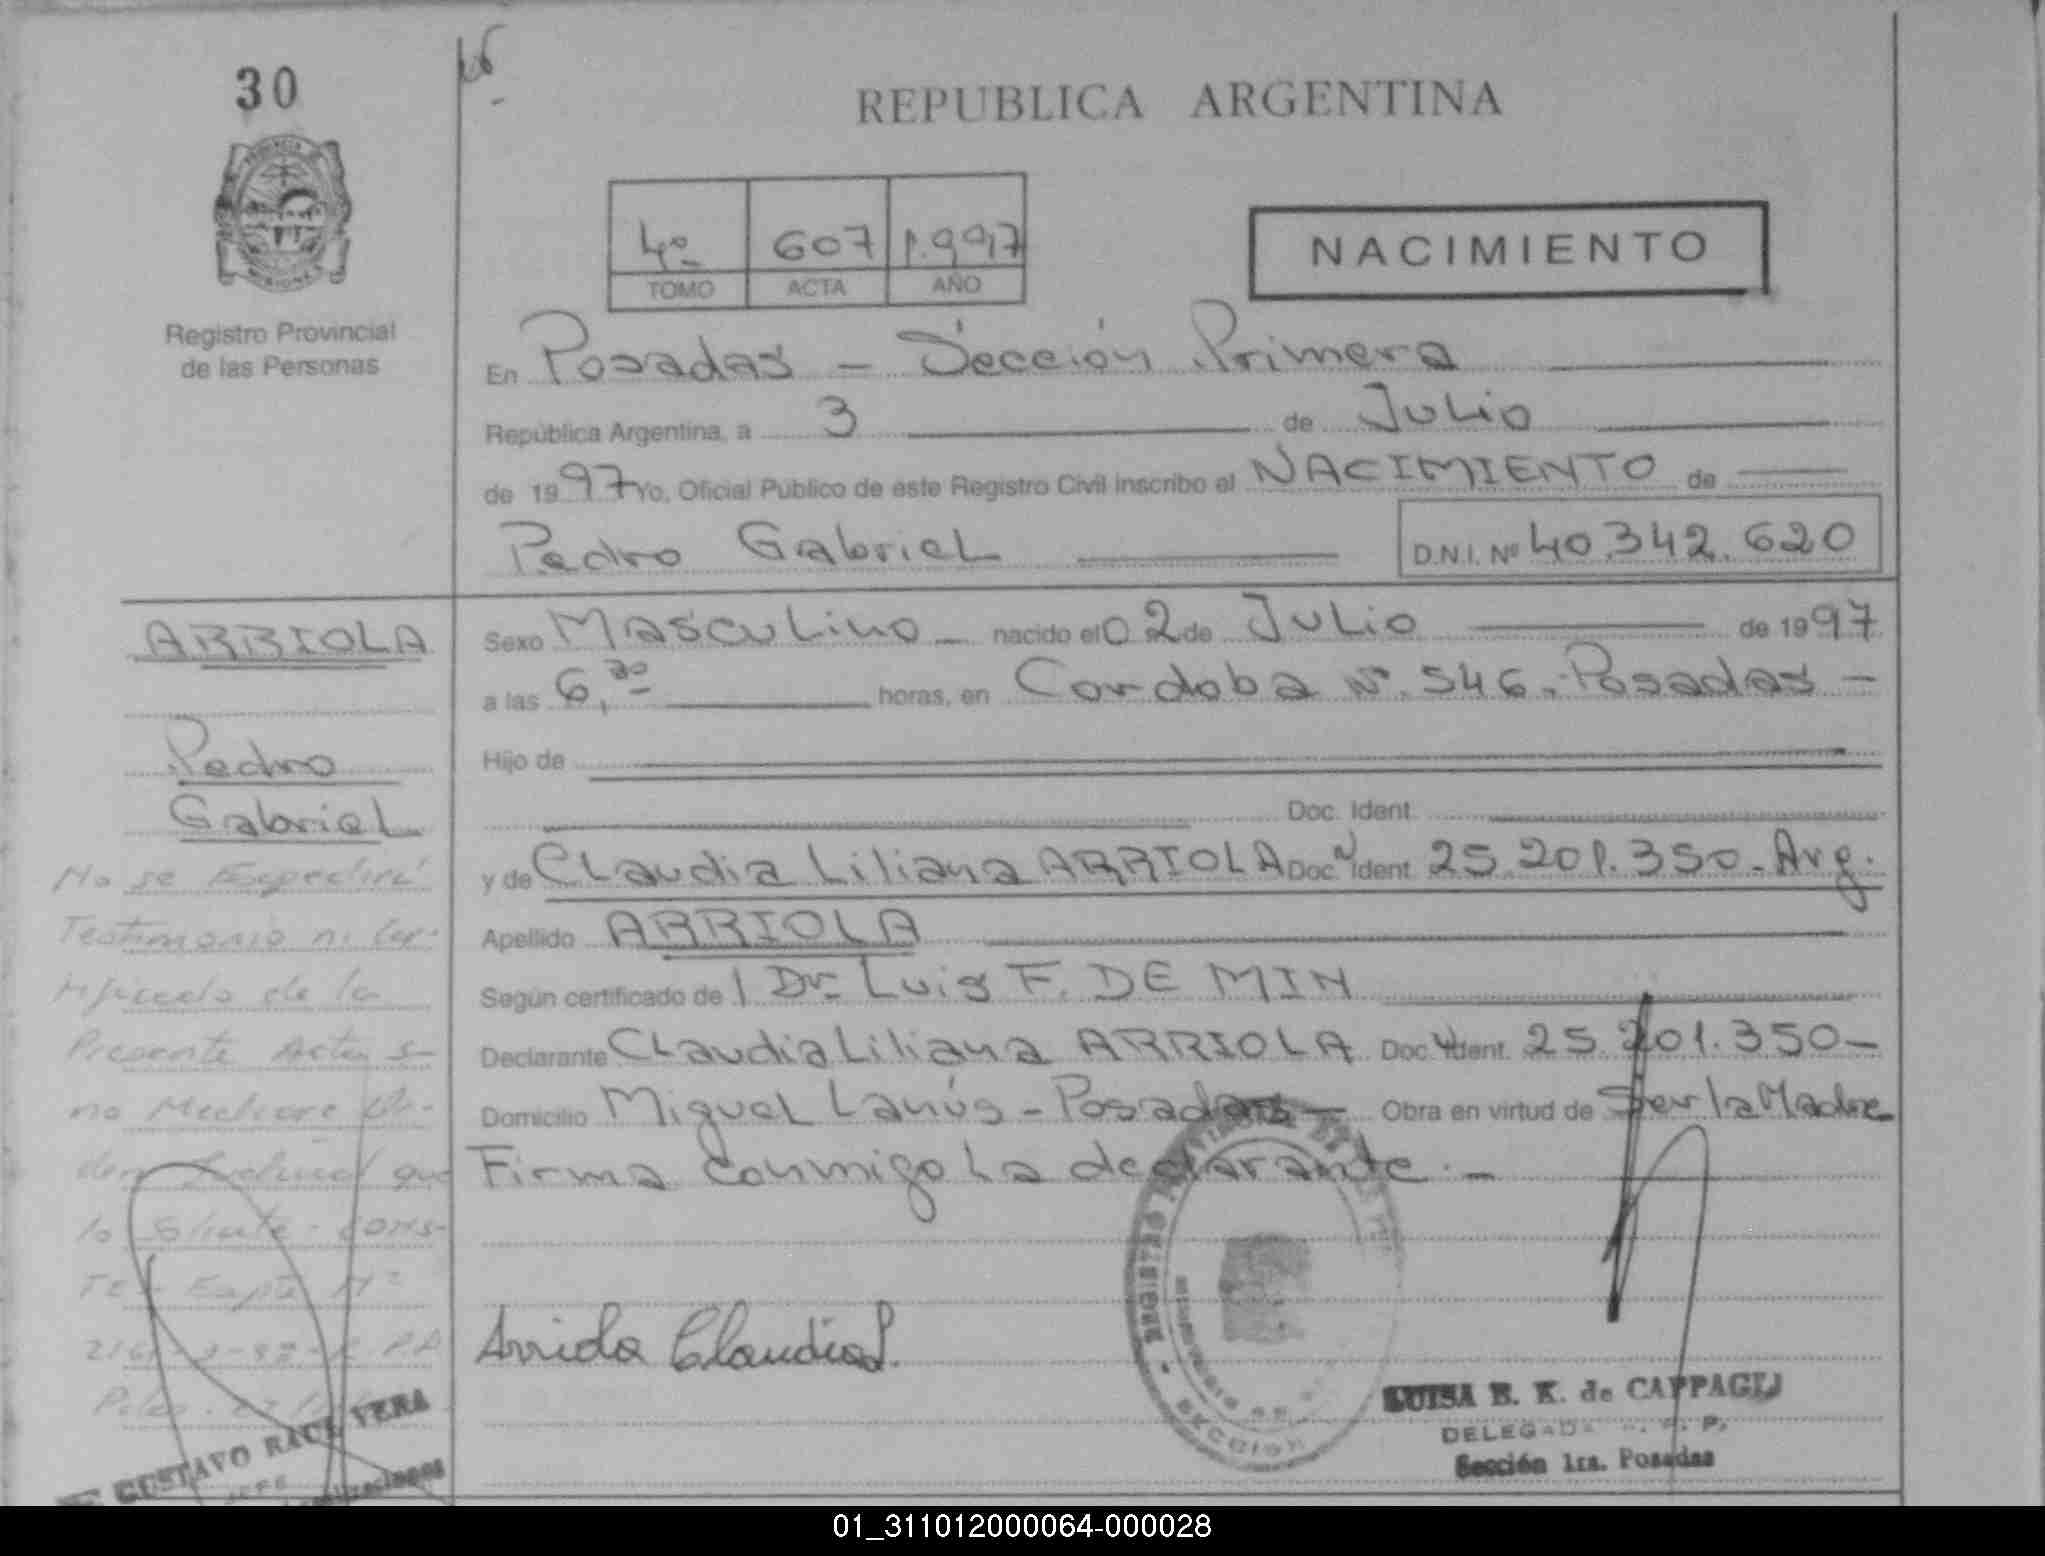 30
REPUBLICA ARGENTINA
4º 607 1.997
TOMO ACTA AÑO
NACIMIENTO
Registro Provincial
de las Personas
En Posadas - Sección Primera
República Argentina, a 3 de Julio
de 1997 Yo, Oficial Público de este Registro Civil inscribo el NACIMIENTO de
Pedro Gabriel D.N.I. Nº 40.342.620
ARRIOLA
Pedro
Gabriel
No se Expedirá
Testimonio ni Cer-
tificado de la
Presente Acta si
no Mediare Or-
den Judicial que
lo Solicite - cons-
te - Expte Nº
GUSTAVO RAUL VERA
JEFE
Sexo Masculino - nacido el 02 de Julio de 1997
a las 6,30 horas, en Cordoba Nº 546.- Posadas -
Hijo de
Doc. Ident.
y de Claudia Liliana ARRIOLA Doc. Ident. 25.201.350 - Arg.
Apellido ARRIOLA
Según certificado de / Dr. Luis F. DE MIN
Declarante Claudia Liliana ARRIOLA Doc. Ident. 25.201.350 -
Domicilio Miguel Lanús - Posadas - Obra en virtud de Ser la Madre
Firma conmigo la declarante. -
Arriola Claudia L.
REGISTRO
SECCION
LUISA E. K. de CAPPAGLI
DELEGADA R. P. P.
Sección 1ra. Posadas
01_311012000064-000028